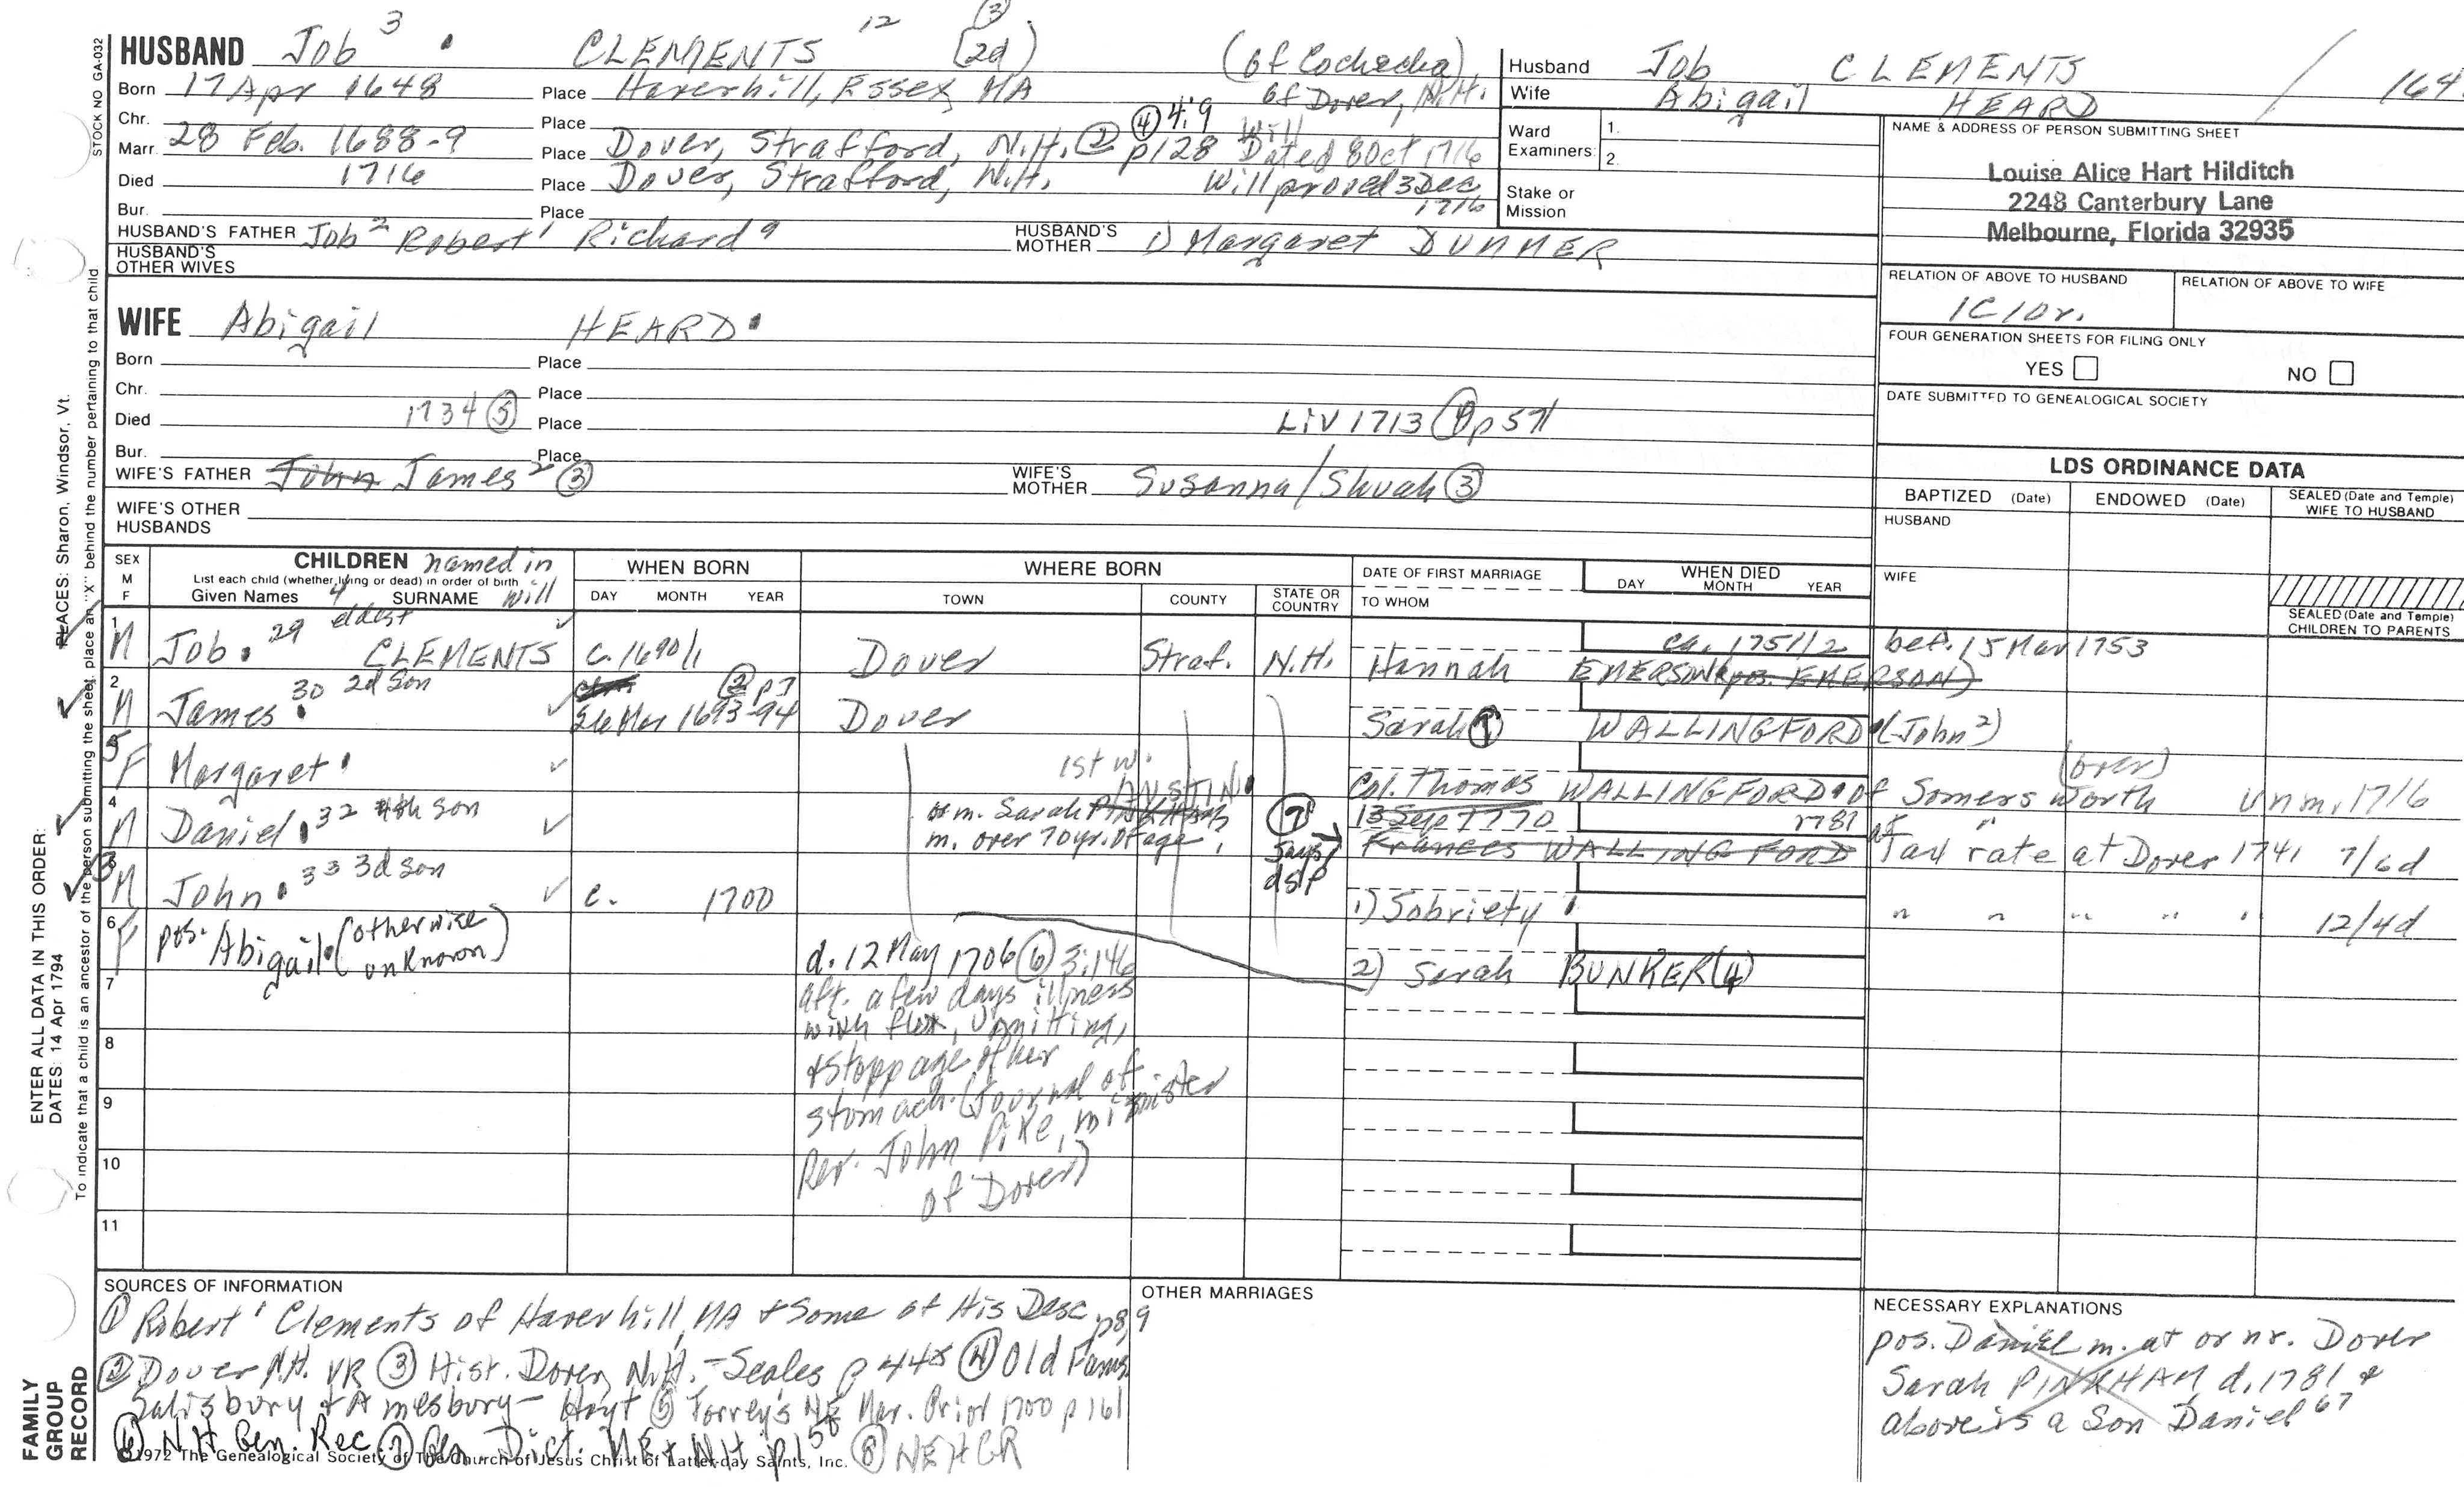 HUSBAND Job 3 CLEMENTS 12 (2d) (3) (of Cochecha),
Born 17 Apr 1648 Place Haverhill, Essex, MA of Dover, N.H.
Chr. Place ④ 4:9 Will
Marr. 28 Feb. 1688-9 Place Dover, Strafford, N.H. ② p128 Dated 8 Oct 1716
Died 1716 Place Dover, Strafford, N.H. Will proved 3 Dec
Bur. Place 1716
HUSBAND'S FATHER Job 2 Robert 1 Richard a HUSBAND'S MOTHER 1) Margaret DUMMER
HUSBAND'S OTHER WIVES
Husband Job CLEMENTS / 164
Wife Abigail HEARD
Ward Examiners: 1.
2.
Stake or Mission
NAME & ADDRESS OF PERSON SUBMITTING SHEET
Louise Alice Hart Hilditch
2248 Canterbury Lane
Melbourne, Florida 32935
RELATION OF ABOVE TO HUSBAND RELATION OF ABOVE TO WIFE
1C10r.
FOUR GENERATION SHEETS FOR FILING ONLY
YES NO
DATE SUBMITTED TO GENEALOGICAL SOCIETY
WIFE Abigail HEARD
Born Place
Chr. Place
Died 1734 ⑤ Place Liv 1713 ① p 571
Bur. Place
WIFE'S FATHER John James 2 ③ WIFE'S MOTHER Susanna/Shuah ③
WIFE'S OTHER HUSBANDS
LDS ORDINANCE DATA
BAPTIZED (Date) ENDOWED (Date) SEALED (Date and Temple) WIFE TO HUSBAND
HUSBAND
WIFE
SEALED (Date and Temple) CHILDREN TO PARENTS
SEX M F CHILDREN named in will
List each child (whether living or dead) in order of birth
Given Names 4 SURNAME
WHEN BORN DAY MONTH YEAR
WHERE BORN TOWN COUNTY STATE OR COUNTRY
DATE OF FIRST MARRIAGE TO WHOM
WHEN DIED DAY MONTH YEAR
1 M Job 29 eldest CLEMENTS c. 1690/1 Dover Straf. N.H. Hannah EMERSON (pos. EMERSON) ca. 1751/2 bet. 15 Mar 1753
2 M James 30 2d son 26 Mar 1693-94 ② p7 Dover Sarah ① WALLINGFORD (John 2)
5 F Margaret Col. Thomas WALLINGFORD of Somersworth (over) unm. 1716
4 M Daniel 32 4th son 1st w. or m. Sarah AUSTIN
m. over 70 yr. of age, ⑦ says dsp 13 Sep 1770 1781 Frances WALLINGFORD Tax rate at Dover 1741 7/6d
3 M John 33 3d son c. 1700 1) Sobriety " " " " " 12/4d
6 F pos. Abigail (otherwise unknown)
2) Sarah BUNKER (4)
d. 12 May 1706 ⑥ 3:146
aft. a few days illness
with flux, vomitting,
& stoppage of her
stomach. (Journal of
Rev. John Pike, minister
of Dover)
7
8
9
10
11
SOURCES OF INFORMATION
① Robert 1 Clements of Haverhill, MA & Some of His Desc p8,9
② Dover N.H. VR ③ Hist. Dover, N.H. - Scales p 448 ④ Old Fams.
Salisbury & Amesbury - Hoyt ⑤ Torrey's NE Mar. Prior 1700 p 161
⑥ NH Gen. Rec. ⑦ Gen. Dict. ME & NH p150 ⑧ NEHGR
©1972 The Genealogical Society of The Church of Jesus Christ of Latter-day Saints, Inc.
OTHER MARRIAGES
NECESSARY EXPLANATIONS
pos. Daniel m. at or nr. Dover
Sarah PINKHAM d. 1781 &
above is a son Daniel 67
STOCK NO GA-032
To indicate that a child is an ancestor of the person submitting the sheet, place an "X" behind the number pertaining to that child
PLACES: Sharon, Windsor, Vt.
ENTER ALL DATA IN THIS ORDER:
DATES: 14 Apr 1794
FAMILY GROUP RECORD